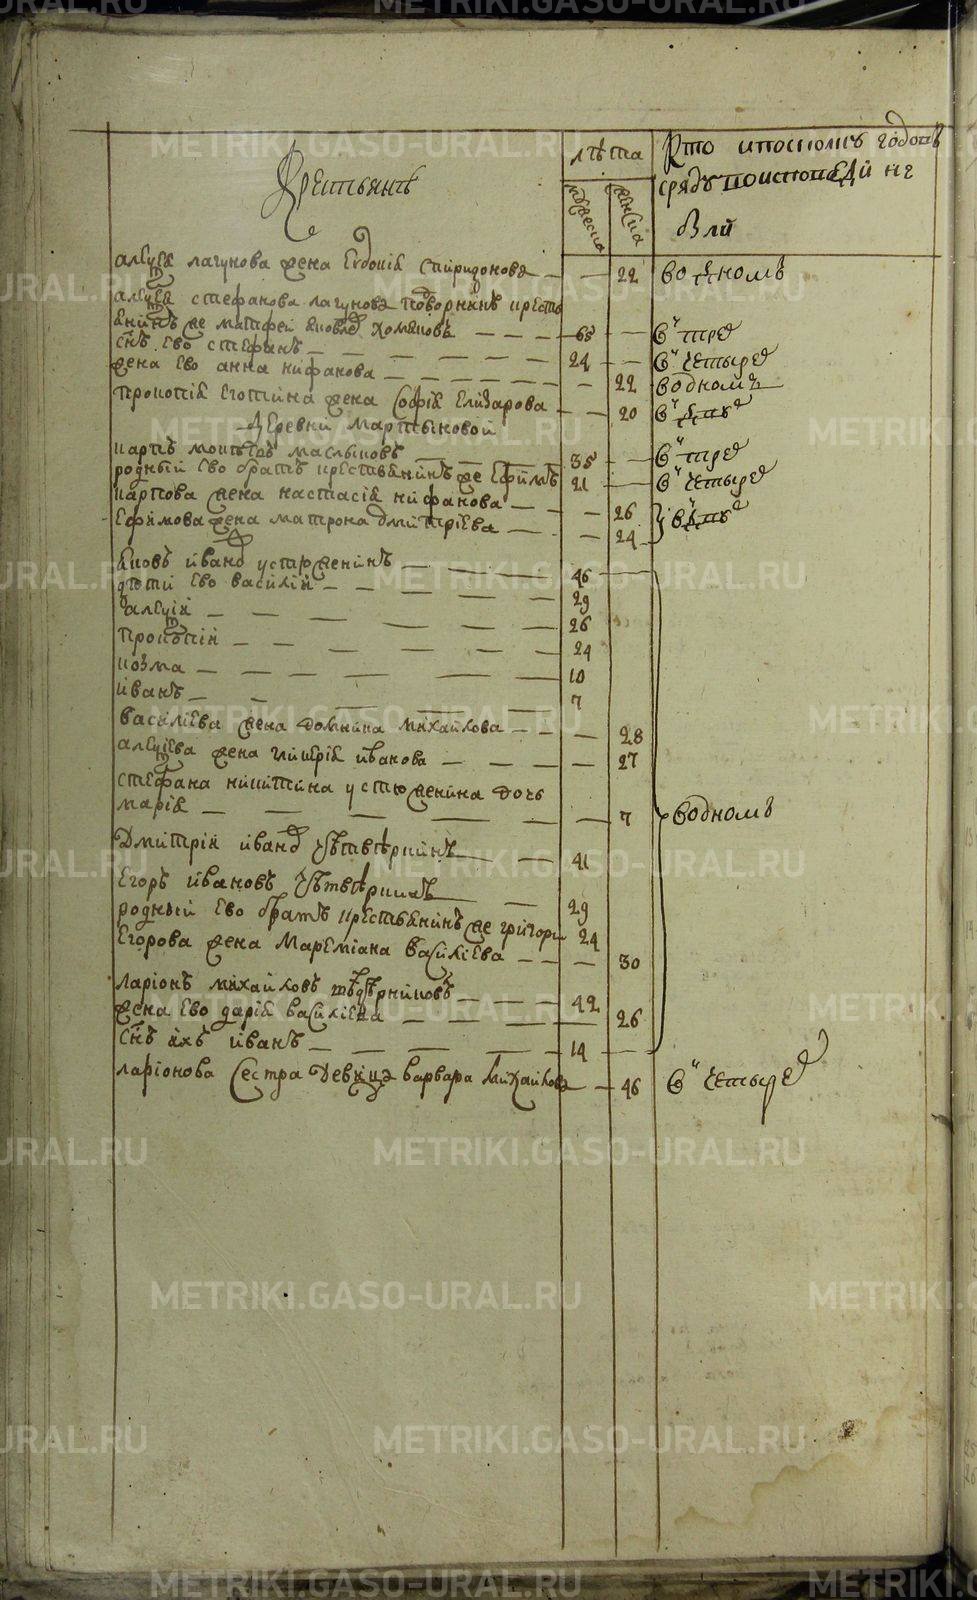 Крестьянъ
лѣта
мужеска
женска
Кто иноколикъ годовъ
сряду поисповѣди не
были
алеѯѣя лагунова жена Евдокія спиридонова — — 22 во едномъ
алеѯѣя стефанова лагунова подворникъ кресть
янинъ же матфей яковлевъ хомяковъ — — — 65 — въ трехъ
снъ ево стефанъ — — — — 24 — въ четырехъ
жена ево анна нифанова — — — — — 22 водномъ
прокопія жена софія Елизарова — — 20
Деревни мартьяновой
карпъ масльіковъ — — — 35 — въ трехъ
родный ево братъ крестьянинъ же Ефимъ 21 — въ четырехъ
карпова жена настасія нифанова — — — 26
Ефимова жена матрона дмитріева — — 24
яковъ ивановъ устюженинъ — — — 46
дѣти ево василій — — — — 29
алеѯѣй — — — — 26
прокопій — — — — 24
козма — — — — 10
иванъ — — — — 7
василіева жена домника михайлова — — — 28
алеѯѣева жена гликерія иванова — — — 27
стефана никитина устюженина дочь
марія — — — — 7 водномъ
Дмитрій ивановъ — — 41
Егоръ ивановъ — 29
родный ево братъ крестьянинъ же григори 24
Егорова жена Мареміана василіева — — — 30
ларіонъ михайловъ — — — 42
жена ево дарія василіева — — — 26
снъ ихъ иванъ — — — — 14
ларіонова сестра девица варвара михайлова — 46 въ четырехъ
METRIKI.GASO-URAL.RU